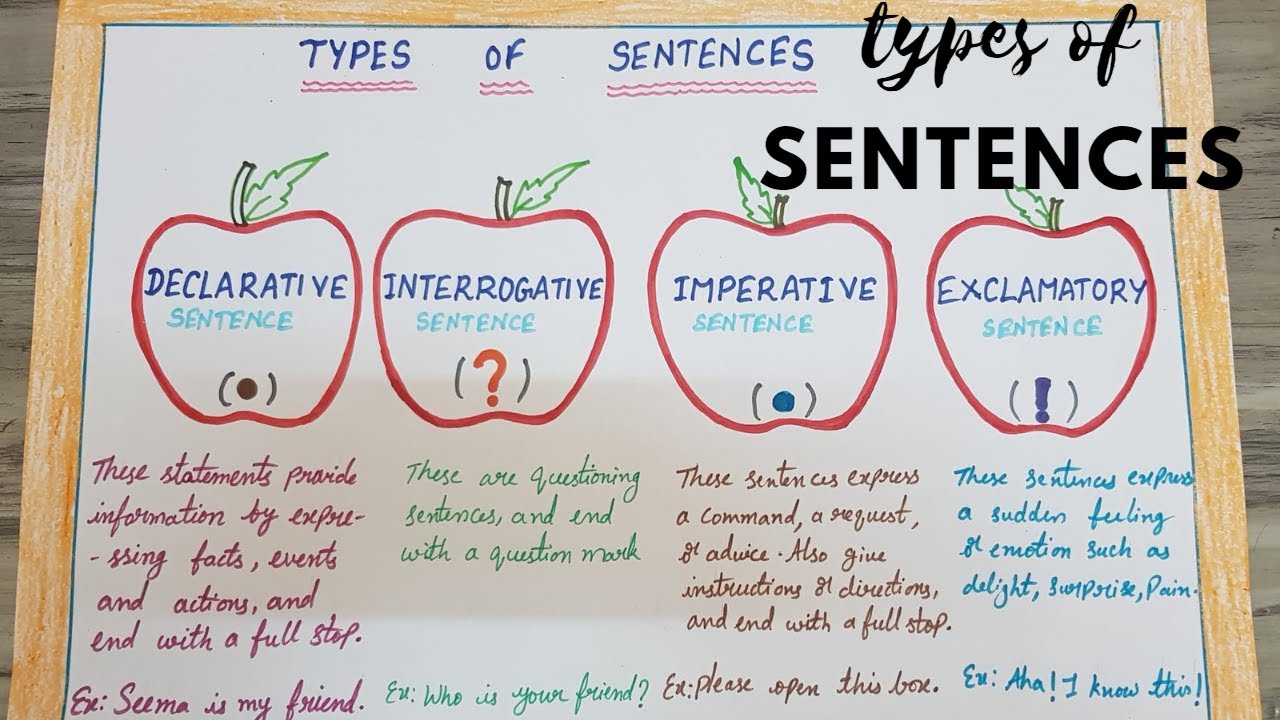 TYPES OF SENTENCES
types of
SENTENCES
DECLARATIVE
SENTENCE
(.)
These statements provide
information by expre-
-ssing facts, events
and actions, and
end with a full stop.
Ex: Seema is my friend.
INTERROGATIVE
SENTENCE
(?)
These are questioning
sentences, and end
with a question mark
Ex: Who is your friend?
IMPERATIVE
SENTENCE
(.)
These sentences express
a command, a request,
or advice. Also give
instructions or directions,
and end with a full stop.
Ex: please open this box.
EXCLAMATORY
SENTENCE
(!)
These sentences express
a sudden feeling
or emotion such as
delight, surprise, Pain.
Ex: Aha! I know this!